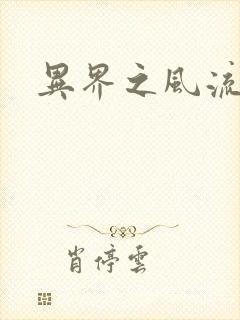 異界之風流
肖停雲